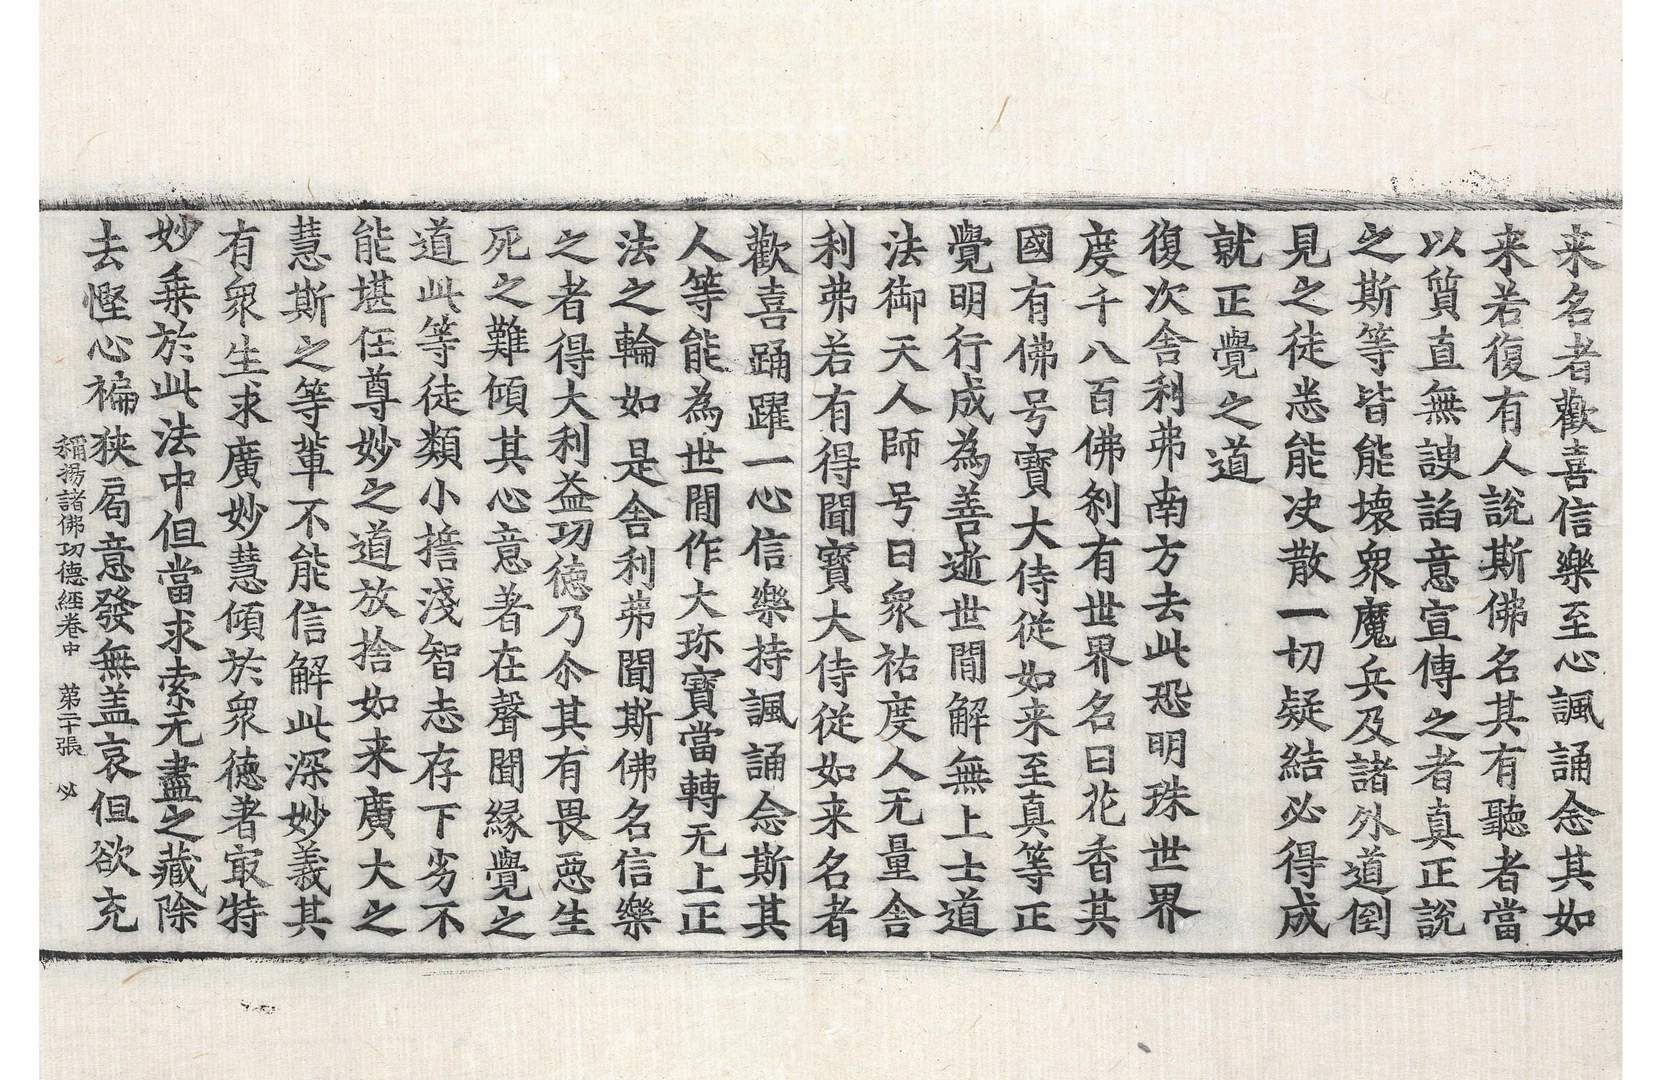 来名者歡喜信樂至心諷誦念其如
来若復有人說斯佛名其有聽者當
以質直無諛諂意宣傳之者真正說
之斯等皆能壞衆魔兵及諸外道倒
見之徒悉能决散一切疑結必得成
就正覺之道
復次舍利弗南方去此恐明珠世界
度千八百佛刹有世界名曰花香其
國有佛号寶大侍從如来至真等正
覺明行成為善逝世間解無上士道
法御天人師号曰衆祐度人无量舍
利弗若有得聞寶大侍從如来名者
歡喜踊躍一心信樂持諷誦念斯其
人等能為世間作大珎寶當轉无上正
法之輪如是舍利弗聞斯佛名信樂
之者得大利益功德乃尒其有畏惡生
死之難傾其心意著在聲聞緣覺之
道此等徒類小擔淺智志存下劣不
能堪任尊妙之道放捨如来廣大之
慧斯之等輩不能信解此深妙義其
有衆生求廣妙慧傾於衆德著㝡特
妙乗於此法中但當求索无盡之藏除
去慳心褊狹局意發無盖哀但欲充
稱揚諸佛功德經卷中 第二十張 必